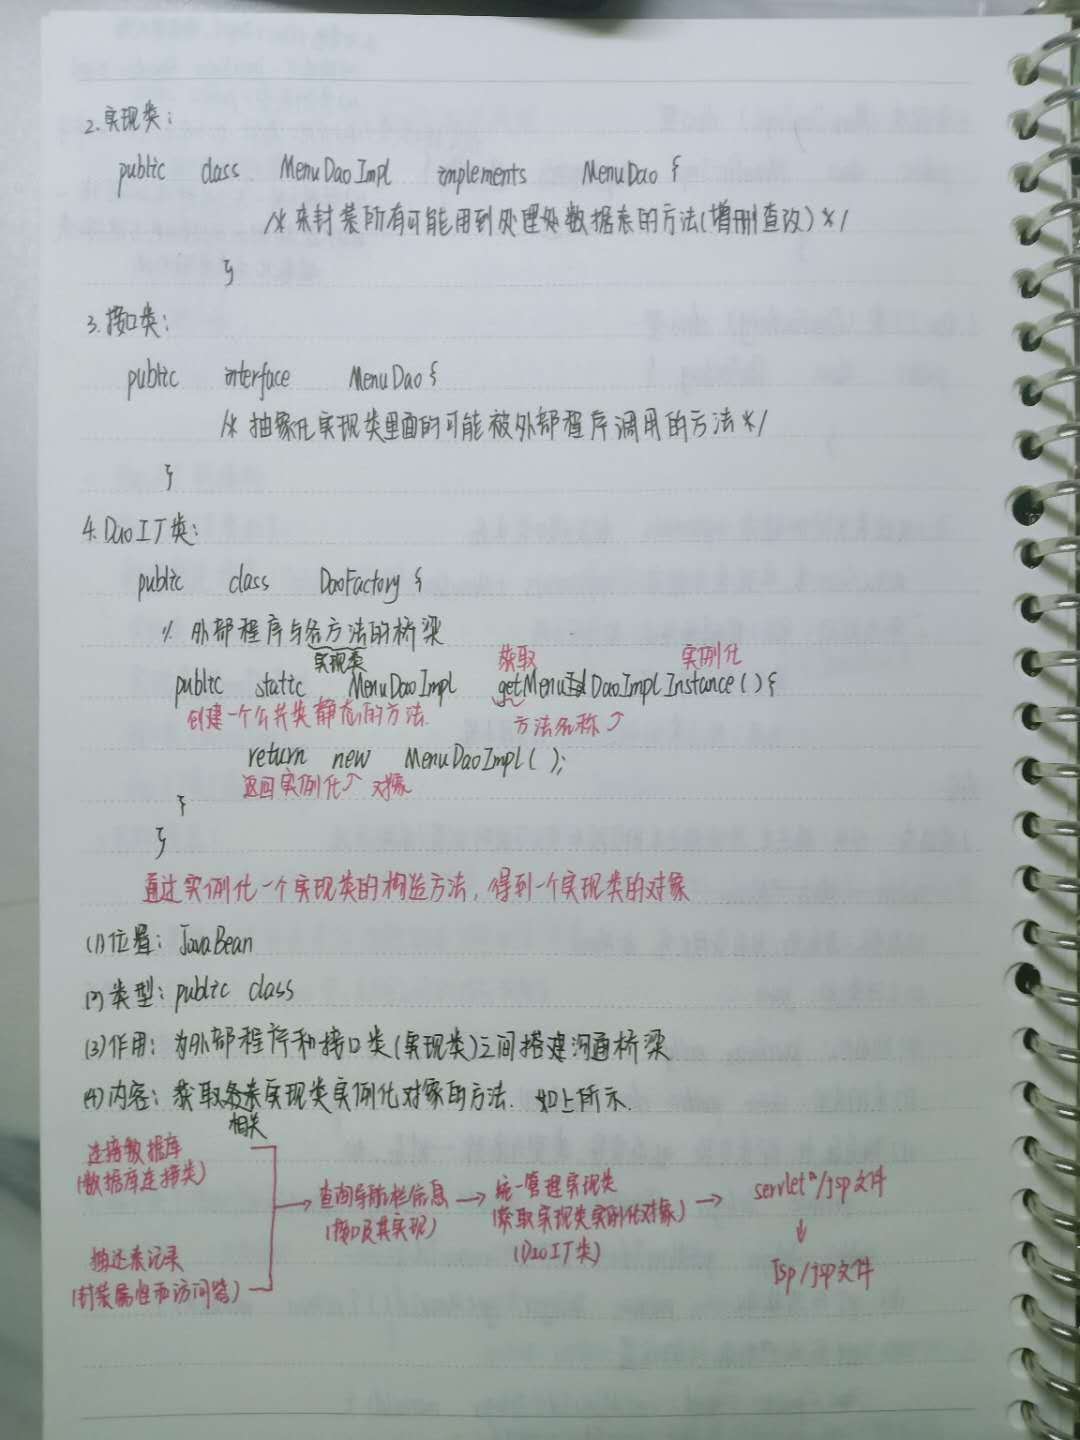 2.实现类：
public class MenuDaoImpl implements MenuDao {
/* 来封装所有可能用到处理处数据表的方法(增删查改) */
}
3.接口类：
public interface MenuDao {
/* 抽象化实现类里面的可能被外部程序调用的方法 */
}
4.DaoIT类：
public class DaoFactory {
外部程序与各方法的桥梁
实现类 获取 实例化
public static MenuDaoImpl getMenuDaoImplInstance() {
创建一个公共类静态的方法. 方法名称
return new MenuDaoImpl();
返回实例化 对象
}
}
通过实例化一个实现类的构造方法，得到一个实现类的对象
(1)位置：JavaBean
(2)类型：public class
(3)作用：为外部程序和接口类(实现类)之间搭建沟通桥梁
(4)内容：获取实现类实例化对象的方法. 如上所示.
相关
连接数据库
(数据库连接类)
描述表记录
(封装属性和访问器)
→ 查询导航栏信息
(接口及其实现)
→ 统一管理实现类
(获取实现类实例化对象)
(DaoIT类)
→ servlet/jsp文件
↓
Jsp/jsp文件